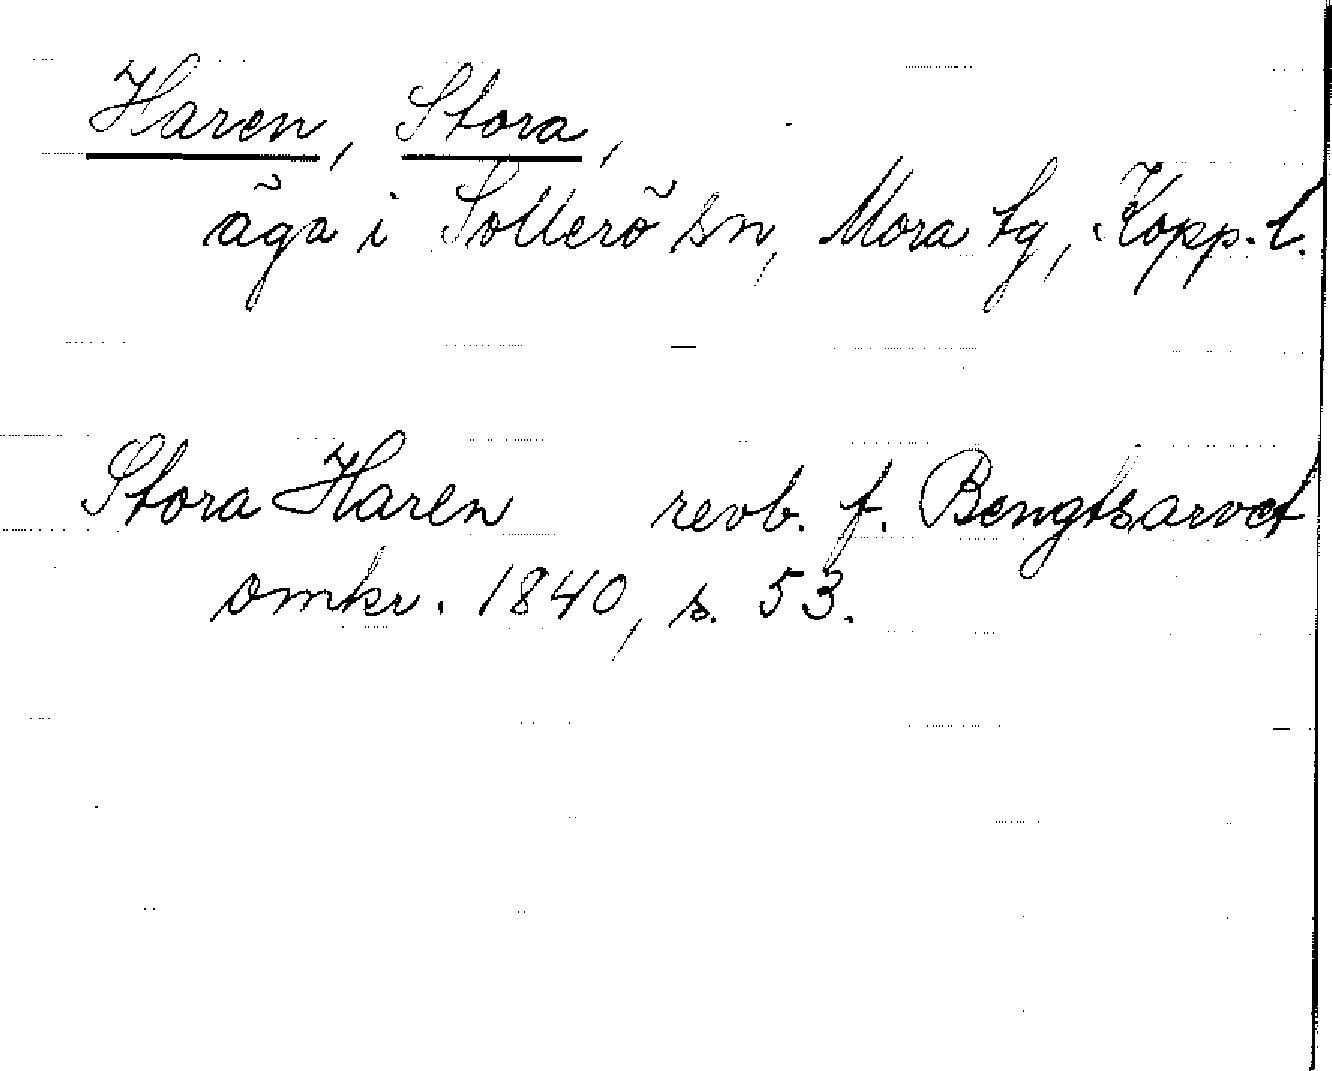 Haren, Stora,
äga i Sollerö sn, Mora tg, Kopp. l.
Stora Haren revb. f. Bengtsarvet
omkr. 1840, s. 53.